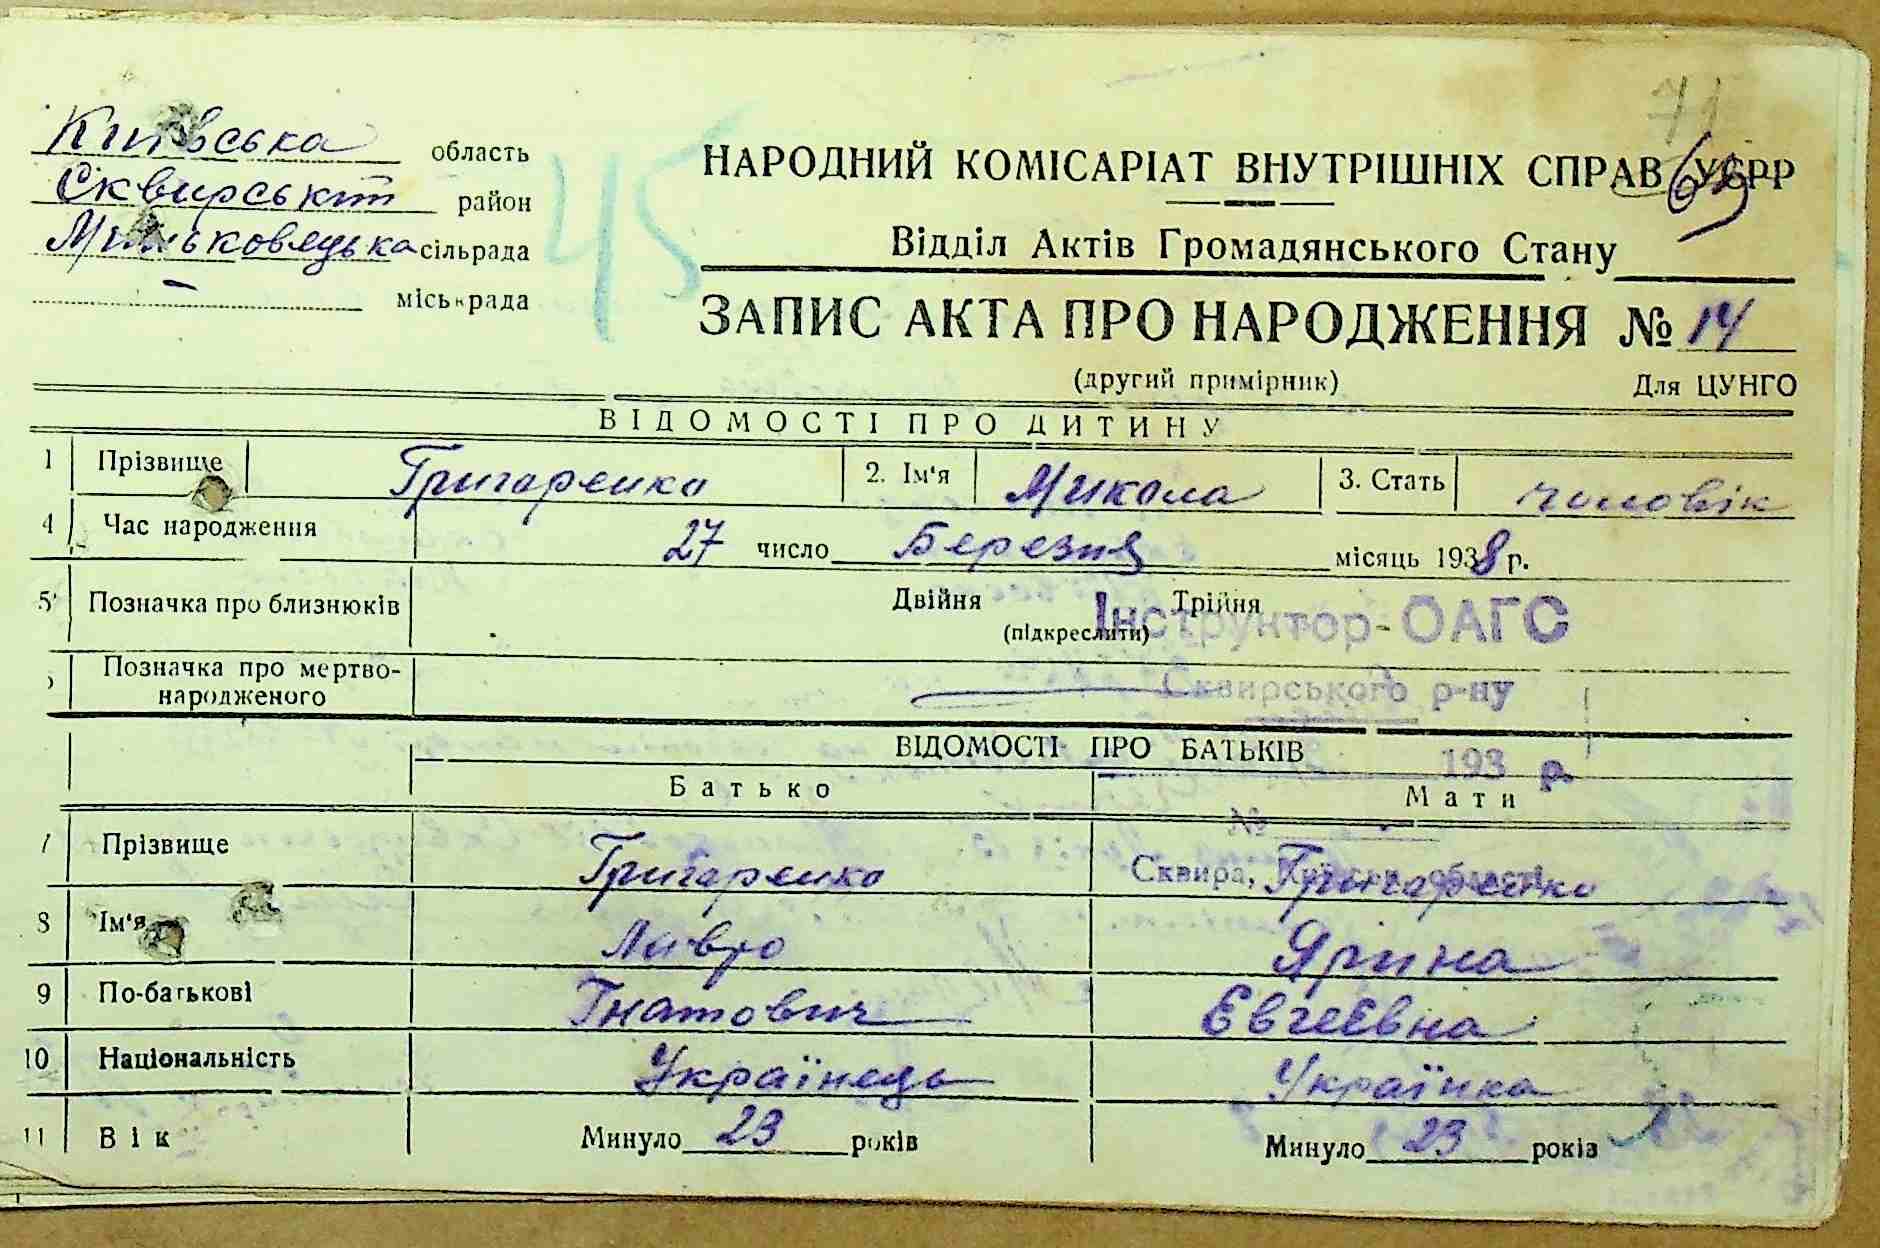 Київська область
Сквирський район
Миньковецька сільрада
міськрада
45
71
69
НАРОДНИЙ КОМІСАРІАТ ВНУТРІШНІХ СПРАВ УСРР
Відділ Актів Громадянського Стану
ЗАПИС АКТА ПРО НАРОДЖЕННЯ № 14
(другий примірник) Для ЦУНГО
ВІДОМОСТІ ПРО ДИТИНУ
1 Прізвище Григаренко 2. Ім'я Микола 3. Стать чоловік
4 Час народження 27 число Березня місяць 1938 р.
5 Позначка про близнюків Двійня Трійня
(підкреслити)
Інструктор-ОАГС
Позначка про мертво-
народженого
Сквирського р-ну
ВІДОМОСТІ ПРО БАТЬКІВ
193 р.
Батько Мати
№
7 Прізвище Григаренко Григаренко
Сквира, області
8 Ім'я Лавро Ярина
9 По-батькові Гнатович Євгеєвна
10 Національність Українець Українка
11 Вік Минуло 23 років Минуло 23 років